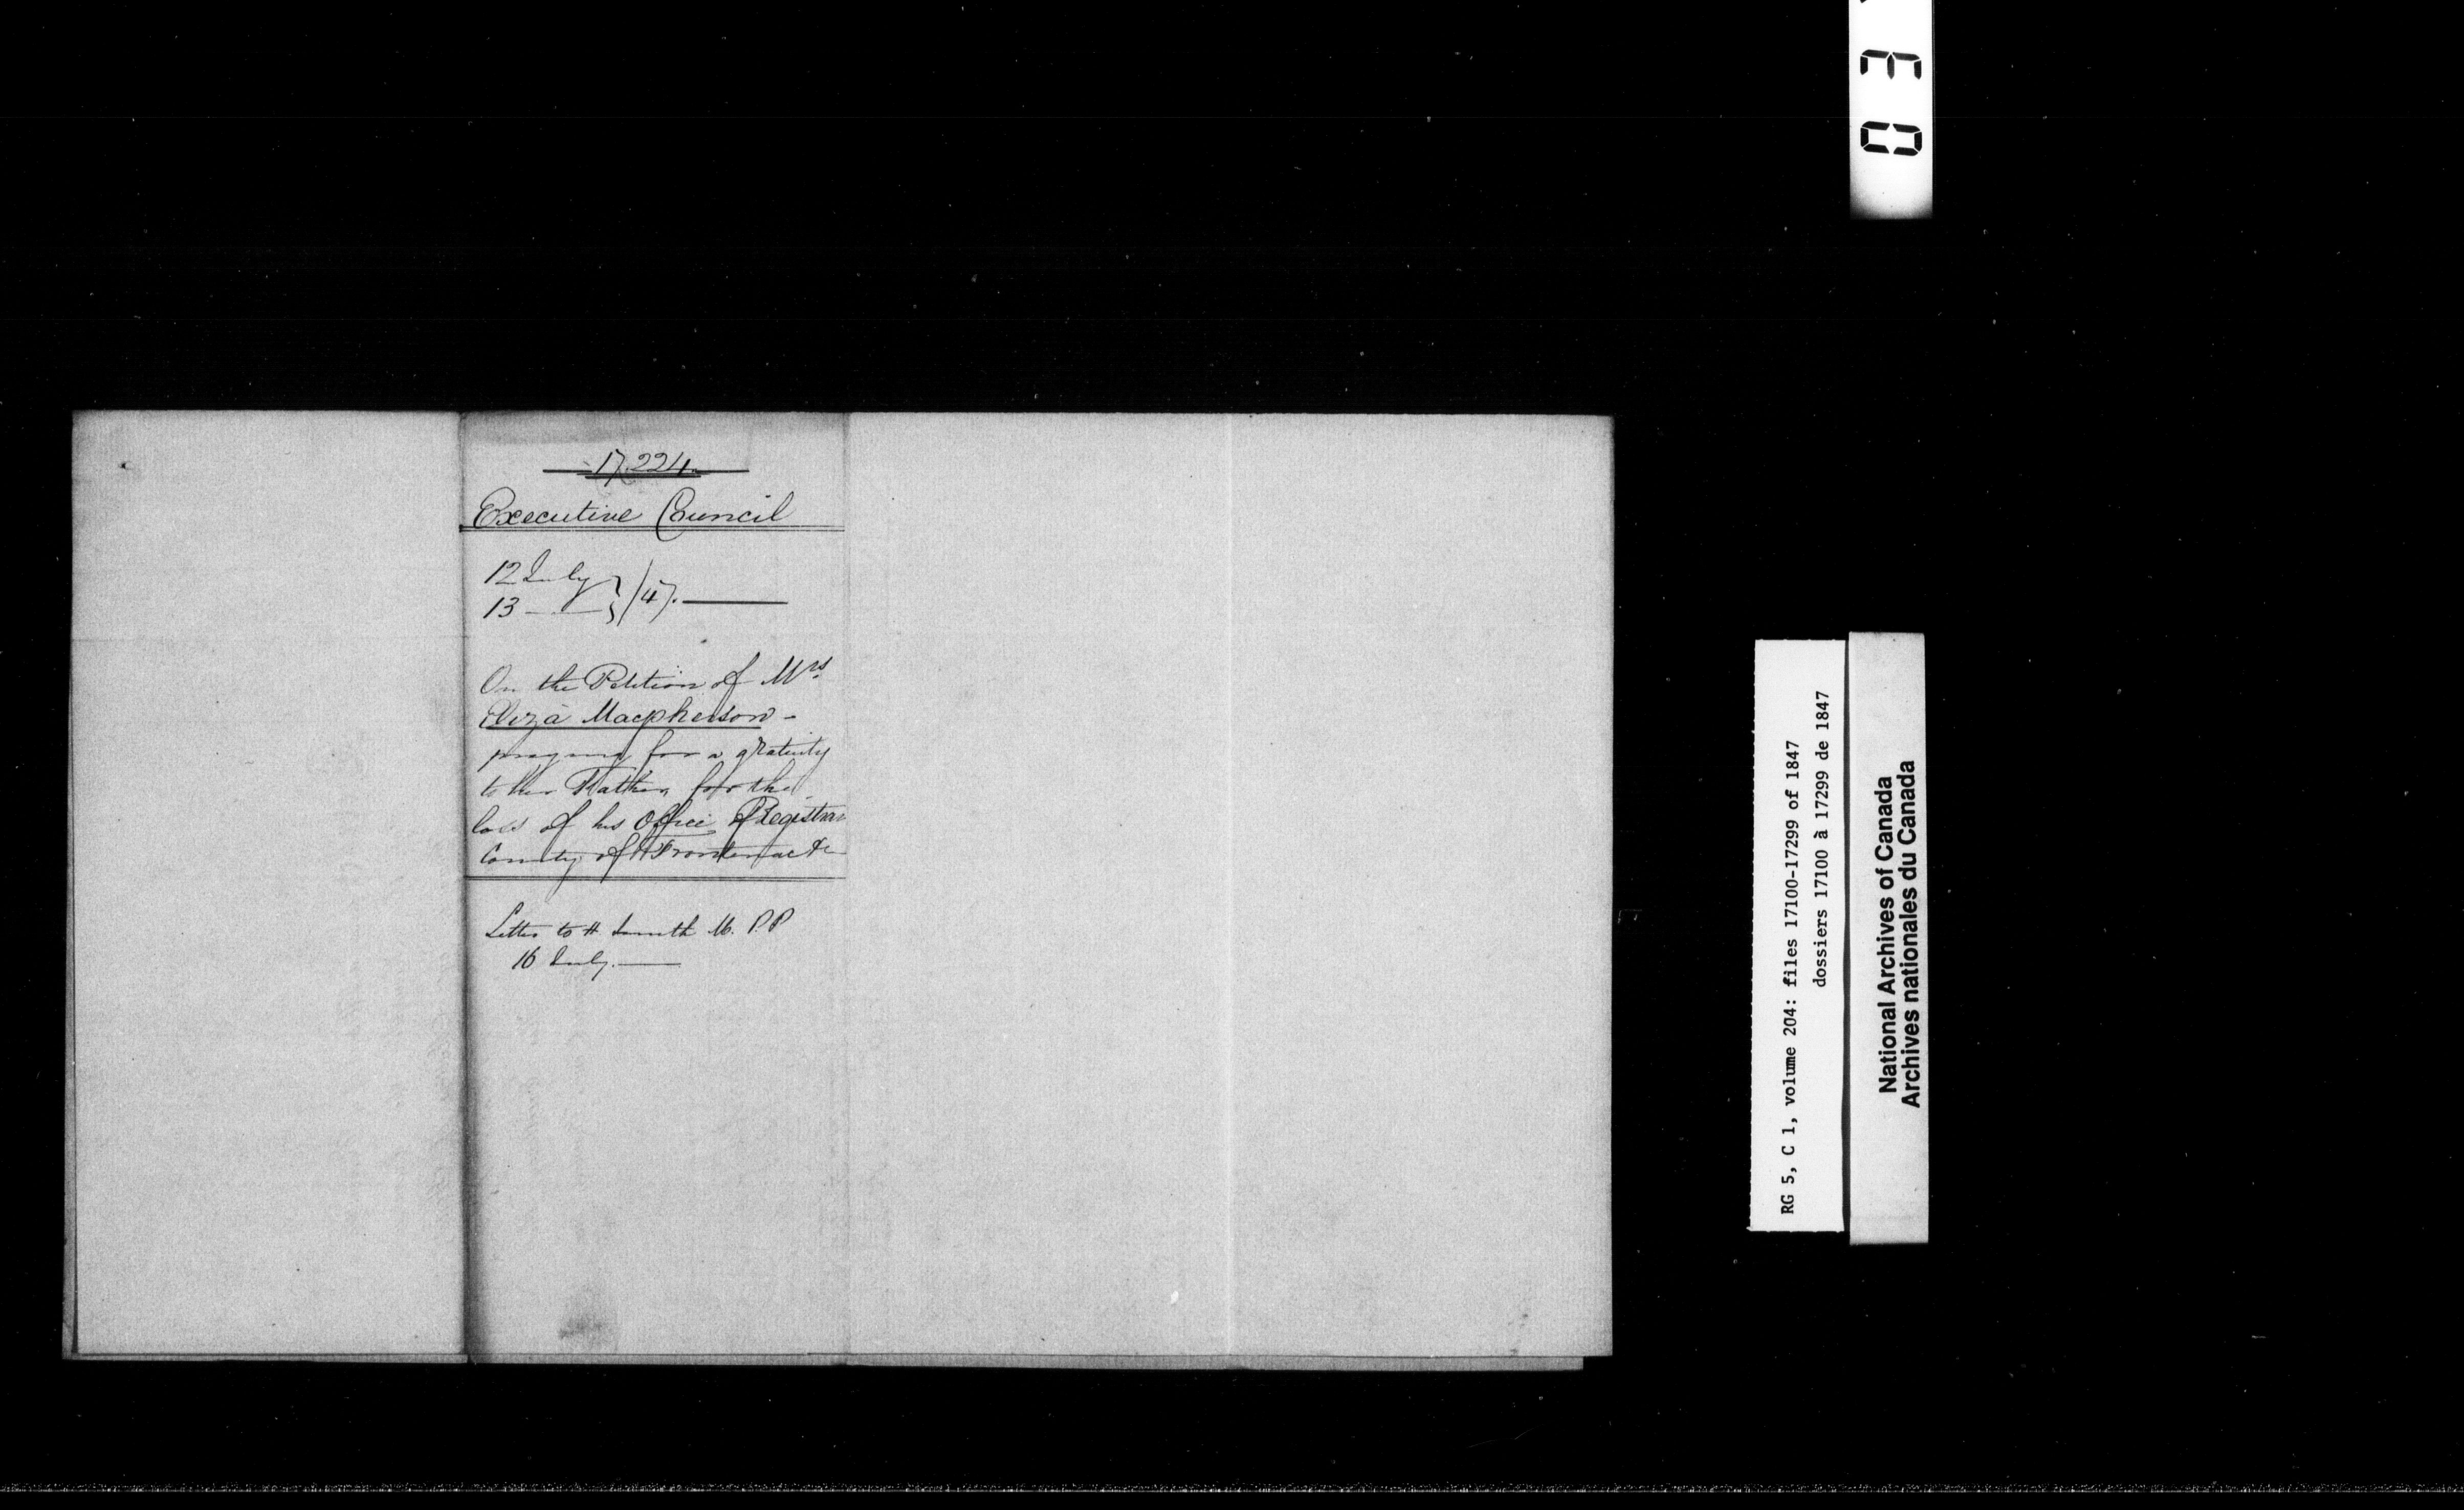 17,224.
Executive Council
12 July } /47.
13 — }
On the Petition of Mrs.
Eliza Macpherson -
praying for a gratuity
to her Father for the
loss of his Office of Registrar
County of Frontenac &c
Letter to H Smith M. P.P
16 July.
RG 5, C 1, volume 204: files 17100-17299 of 1847
dossiers 17100 à 17299 de 1847
National Archives of Canada
Archives nationales du Canada
0 3